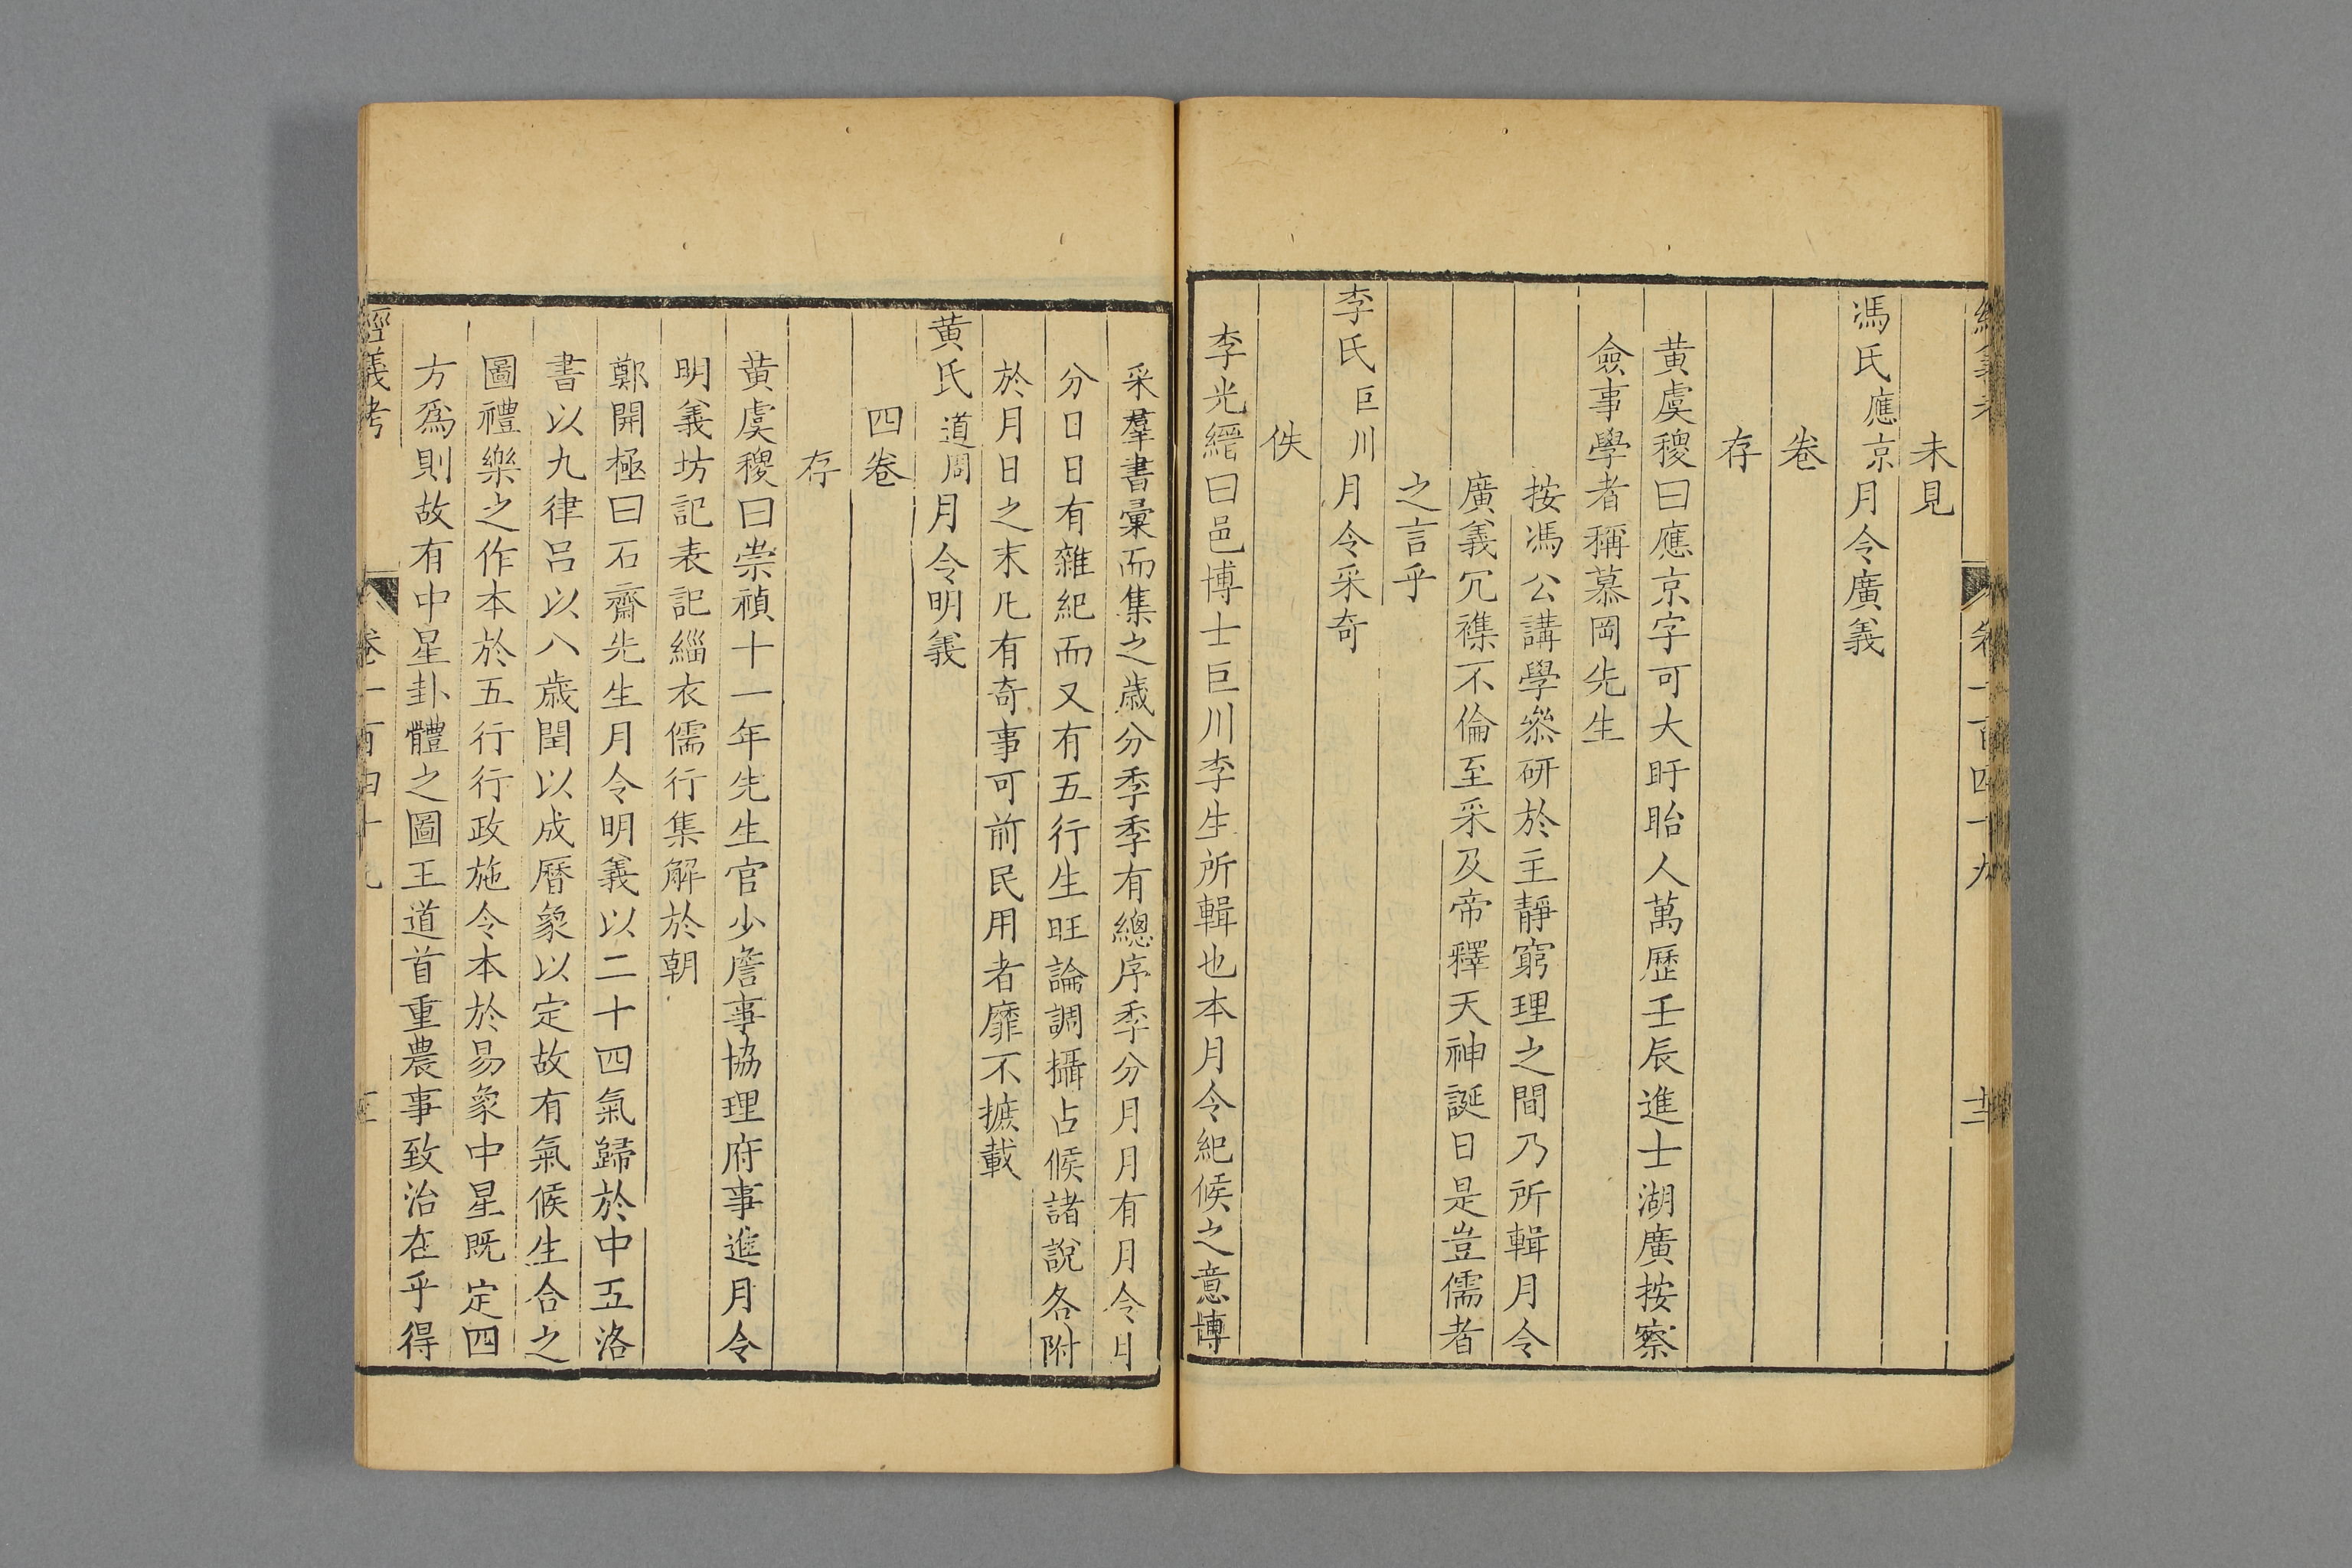 經義考 卷一百四十九 十二
未見
馮氏應京月令廣義
卷
存
黄虞稷曰應京字可大盱眙人萬歷壬辰進士湖廣按察
僉事學者稱慕岡先生
按馮公講學叅研於主靜窮理之間乃所輯月令
廣義冗襍不倫至采及帝釋天神誕日是豈儒者
之言乎
李氏巨川月令采奇
佚
李光縉曰邑博士巨川李生所輯也本月令紀候之意博
采羣書彙而集之歲分季季有總序季分月月有月令月
分日日有雜紀而又有五行生旺論調攝占候諸說各附
於月日之末凡有奇事可前民用者靡不摭載
黄氏道周月令明義
四卷
存
黄虞稷曰崇禎十一年先生官少詹事協理府事進月令
明義坊記表記緇衣儒行集解於朝
鄭開極曰石齋先生月令明義以二十四氣歸於中五洛
書以九律吕以八歲閏以成曆象以定故有氣候生合之
圖禮樂之作本於五行行政施令本於易象中星既定四
方爲則故有中星卦體之圖王道首重農事致治在乎得
經義考 卷一百四十九